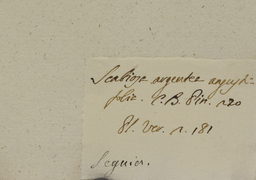 Scabiosa argentea angusti-
folia. C. B. Pin. 270
Pl. Ver. n. 181
Seguier.